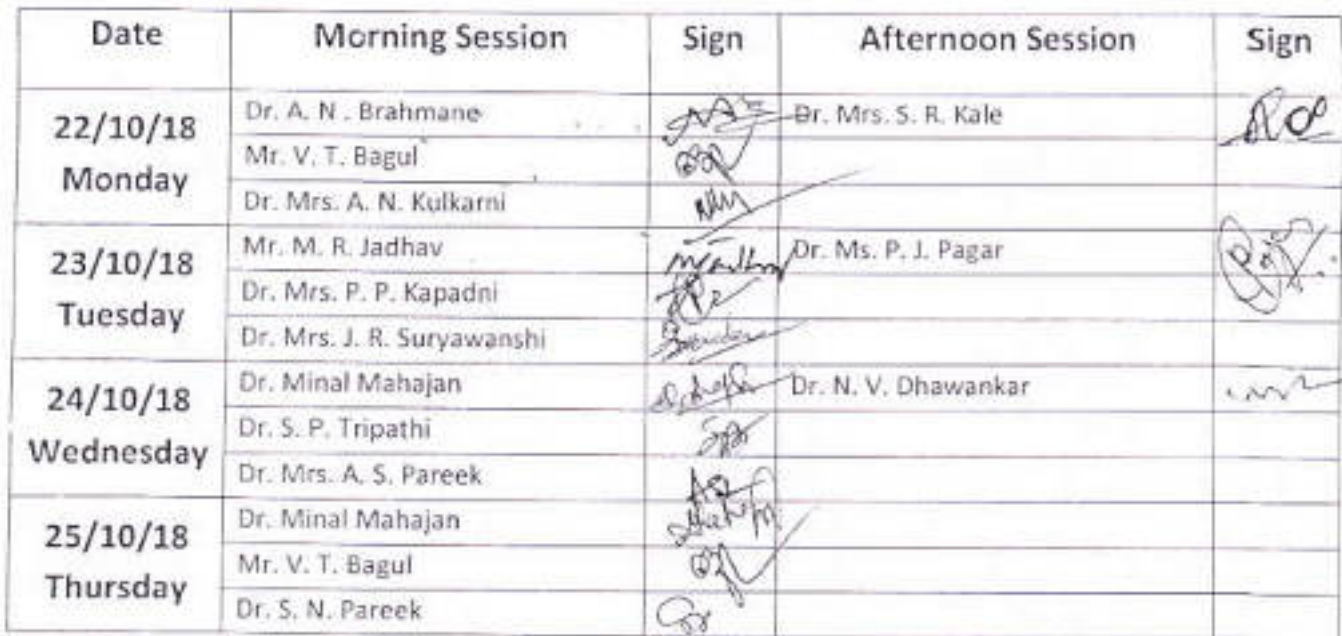 Date Morning Session Sign Afternoon Session Sign
22/10/18
Monday
Dr. A. N . Brahmane Dr. Mrs. S. R. Kale
Mr. V. T. Bagul
Dr. Mrs. A. N. Kulkarni
23/10/18
Tuesday
Mr. M. R. Jadhav Dr. Ms. P. J. Pagar
Dr. Mrs. P. P. Kapadni
Dr. Mrs. J. R. Suryawanshi
24/10/18
Wednesday
Dr. Minal Mahajan Dr. N. V. Dhawankar
Dr. S. P. Tripathi
Dr. Mrs. A. S. Pareek
25/10/18
Thursday
Dr. Minal Mahajan
Mr. V. T. Bagul
Dr. S. N. Pareek